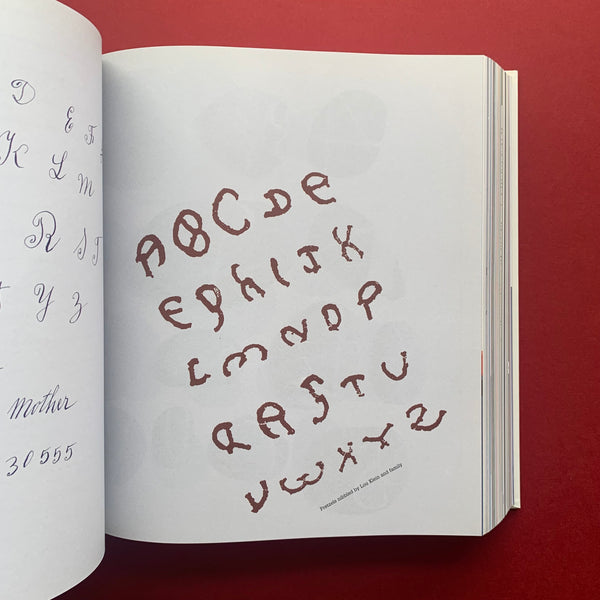 D
E F
K L M
R S T
Y Z
Mother
30555
A B C D E
F G H I J K
L M N O P
Q R S T U
V W X Y Z
Pretzels nibbled by Lou Klein and family